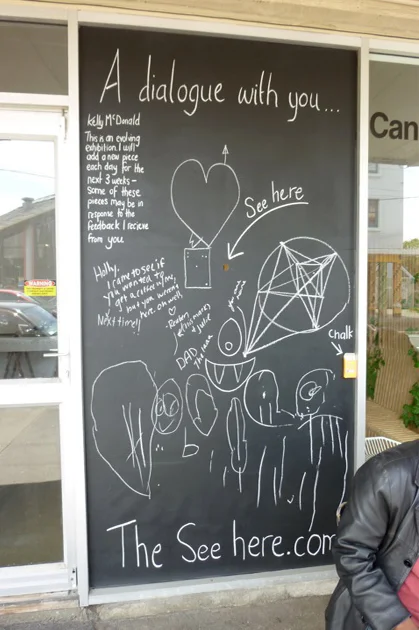 A dialogue with you...
Kelly McDonald
This is an evolving
exhibition. I will
add a new piece
each day for the
next 3 weeks -
some of these
pieces may be in
response to the
feedback I recieve
from you
Can
See here
Holly,
I came to see if
you wanted to
get a coffee w/me,
but you weren't
here. oh well
Next time!!
WARNING
Chalk
DAD
The See here.com